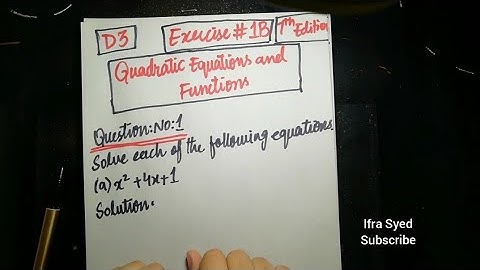 D3
Exercise # 1B
7th Edition
Quadratic Equations and
Functions
Question:No:1
Solve each of the following equations
(a) x² + 4x + 1
Solution:
Ifra Syed
Subscribe